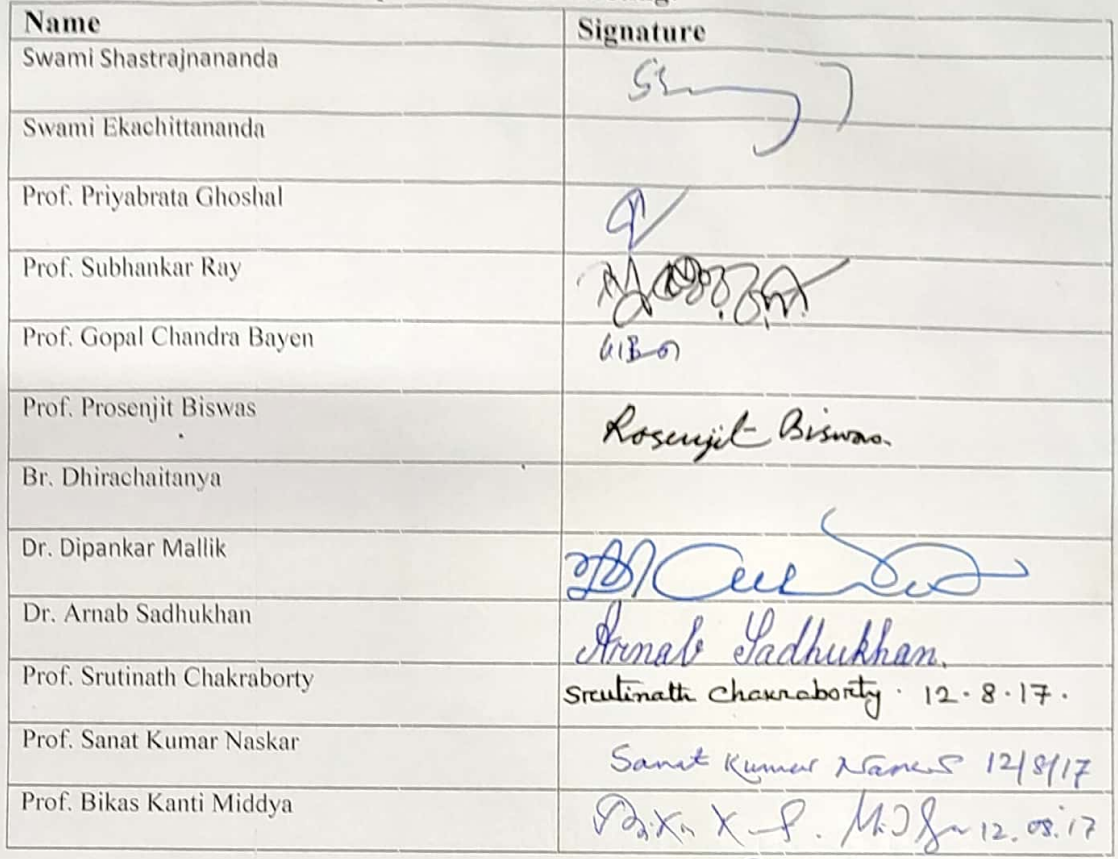 Name Signature
Swami Shastrajnananda
Swami Ekachittananda
Prof. Priyabrata Ghoshal
Prof. Subhankar Ray
Prof. Gopal Chandra Bayen
Prof. Prosenjit Biswas Rosenjit Biswas.
Br. Dhirachaitanya
Dr. Dipankar Mallik
Dr. Arnab Sadhukhan Arnab Sadhukhan.
Prof. Srutinath Chakraborty Srutinath Chakraborty. 12.8.17.
Prof. Sanat Kumar Naskar Sanat Kumar Naskar 12/8/17
Prof. Bikas Kanti Middya 12.08.17